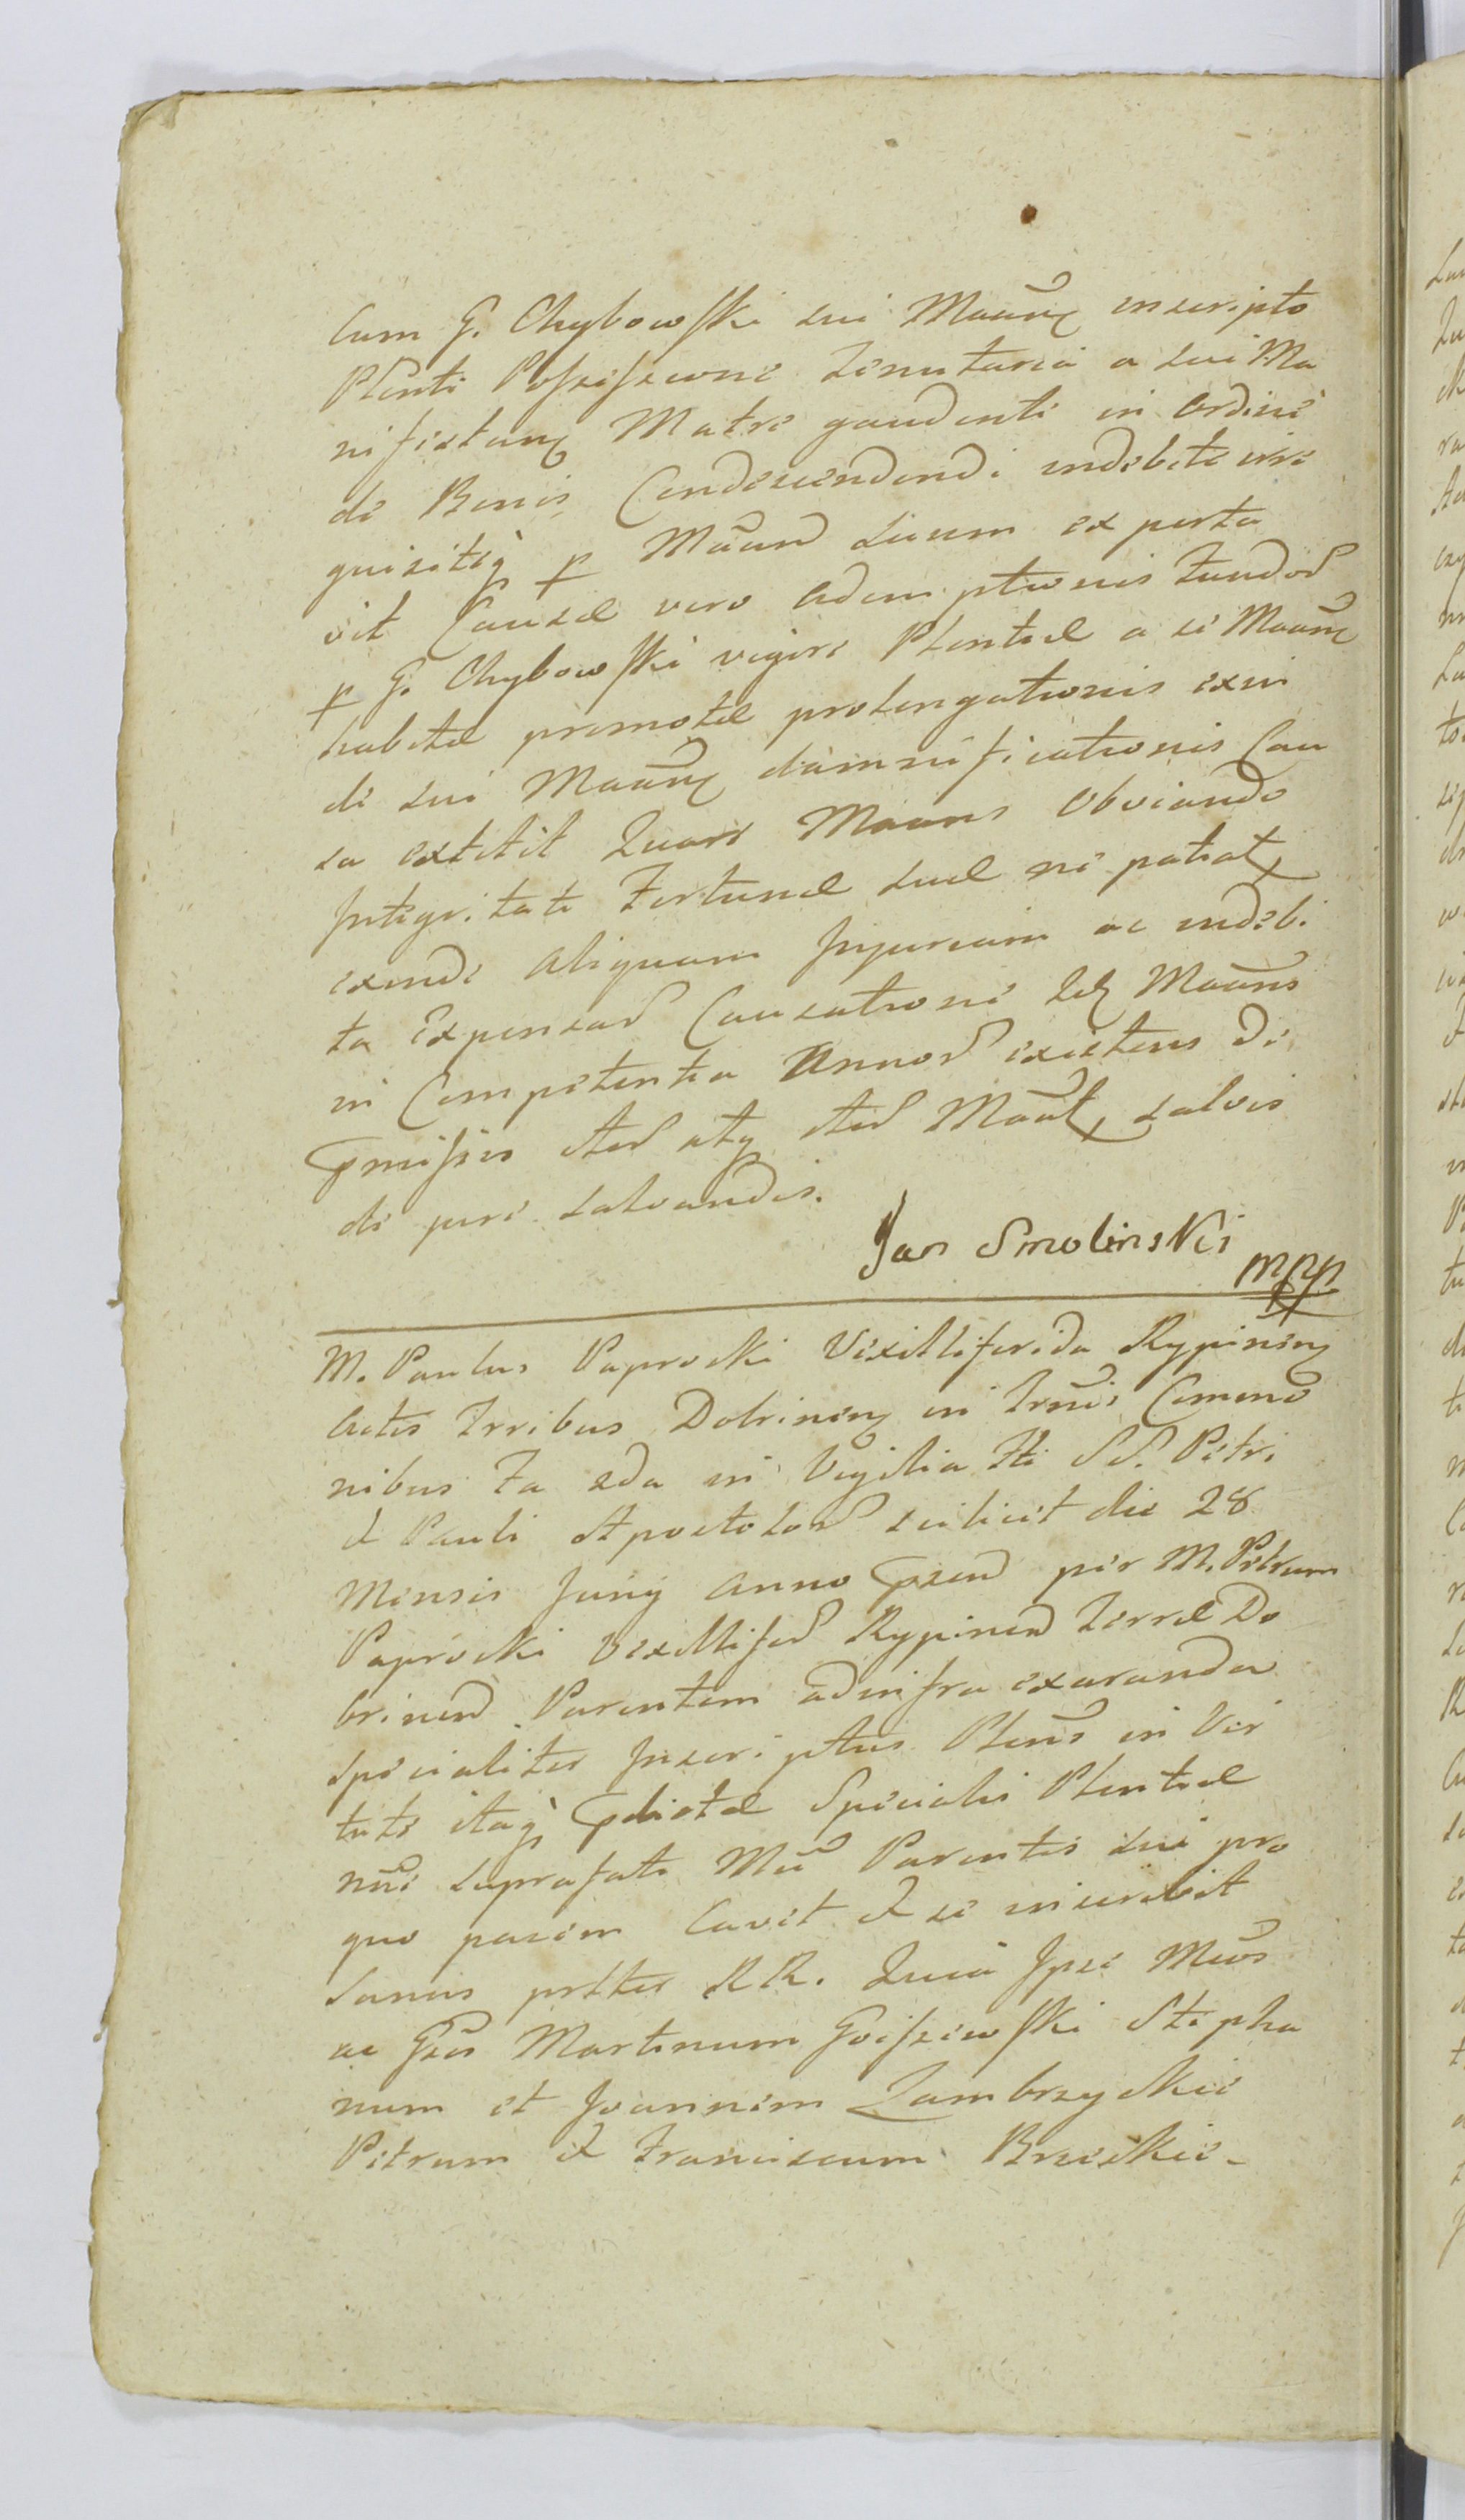 Cum G. Chybowski sui Maãnꝭ inscripto
Plenti Possessione Tenutaria a sui Ma
nifestanꝭ Matre gaudenti in ordine
de Bonis Condescendendi indebite
quisitisq̀ p Maãnd suum experta
vit Causae vero ademptionis fundor
p G. Chybowski vigore Plentae a se Maãnꝭ
habitae promotae prolongationis exin
de sui Maãnꝭ damnificationis Cau
sa extitit Quare Maans obviando
Integritati Fortunae suae ne patiatꝭ
exinde aliquam Injuriam ac indebi
ta Expensar Causatione Idꝭ Maãns
in Competentia Annor existens de
pmissis iter atq iter Maãtꝭ salvis
de jure salvandis.
Jan Smolinski
mpp
M. Paulus Paprocki Vexilliferida Rypinenꝭ
Actis Trribus Dobrinenꝭ in Trmis Comeno
nibus Fa 2da in Vigilia Fti SS. Petri
et Pauli Apostolor scilicet die 28
Mensis Junÿ Anno psend per M. Petrum
Paprocki Vexillifer Rypinen Terrae Do
brinen Parentem ad infra exaranda
specialiter Inscriptus Plens in Vir
tute itaq̀ pdictae Specialis Plentae
nõe suprafati Mci Parentis sui pro
quo pariem cavit et se inscribit
Sanus prtter RR. Quia Ipse Mcus
ac Gsos Martinum Goissewski Stepha
num et Joannem Zambrzyckie
Petrum et Franciscum Brzeskie-